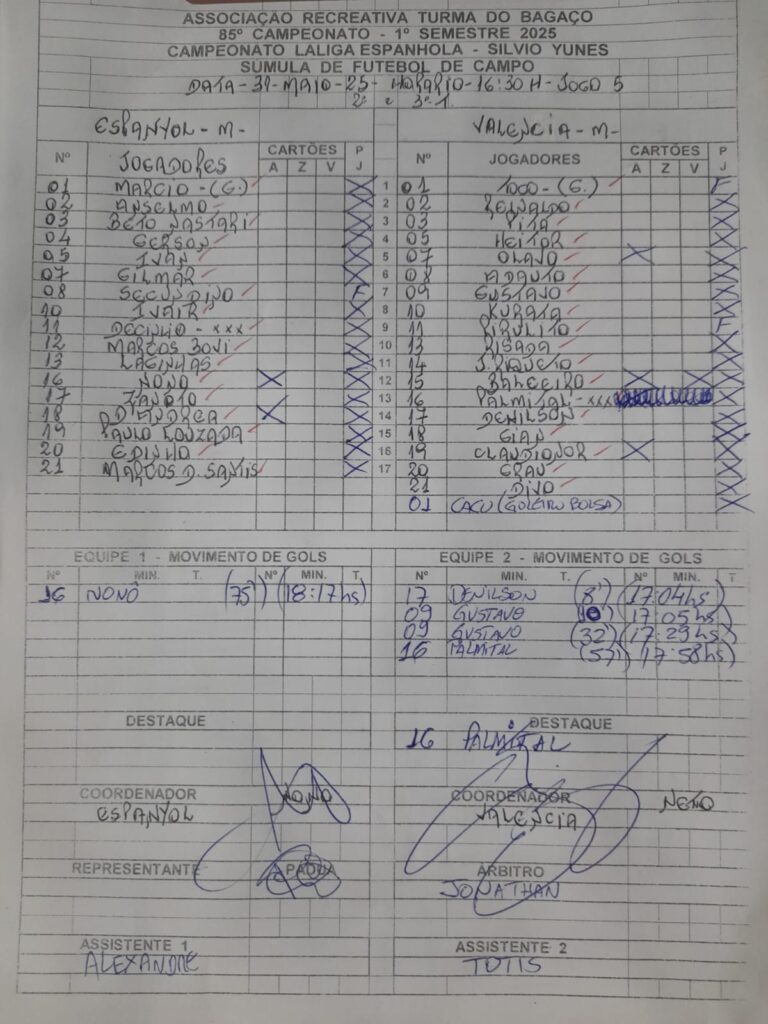 ASSOCIAÇÃO RECREATIVA TURMA DO BAGAÇO
85º CAMPEONATO - 1º SEMESTRE 2025
CAMPEONATO LALIGA ESPANHOLA - SILVIO YUNES
SÚMULA DE FUTEBOL DE CAMPO
DATA-31-MAIO-25- HORÁRIO-16:30 H- JOGO 5
2º e 3º T.
ESPANYOL - M -
VALENCIA - M -
Nº JOGADORES CARTÕES P J
A Z V
Nº JOGADORES CARTÕES P J
A Z V
01 MARCIO - (G.) X 1 01 TOCO - (G.) F
02 ANSELMO X 2 02 REINALDO X
03 BETO NASTARI X 3 03 PITA X
04 GERSON X 4 05 HEITOR X
05 IVAN X 5 07 OLAVO X X
07 GILMAR X 6 08 ADAUTO X
08 SECUNDINO F 7 09 GUSTAVO X
10 IVAIR X 8 10 KURATA X
11 DECINHO - xxx X 9 11 PIRULITO F
12 MARCOS BOVI X 10 13 RISADA X
13 LAGINHAS X 11 14 J. RIQUETO X
16 NONO X X 12 15 BALEEIRO X X X
17 ZANOTO X 13 16 PALMITAL - xxx X
18 D'ANDREA X X 14 17 DENILSON X
19 PAULO LOUZADA X 15 18 GIAN X
20 EDINHO X 16 19 CLAUDIONOR X X
21 MARCOS D. SANTIS X 17 20 GRAU X
21 DINO X
01 CACU (GOLEIRO BOLSA) X
EQUIPE 1 - MOVIMENTO DE GOLS
Nº MIN. T. Nº MIN. T.
16 NONÔ (75') (18:17hs)
EQUIPE 2 - MOVIMENTO DE GOLS
Nº MIN. T. Nº MIN. T.
17 DENILSON (8') (17:04hs)
09 GUSTAVO 17:05hs)
09 GUSTAVO (32') (17:29hs)
16 PALMITAL (57') (17:58hs)
DESTAQUE
DESTAQUE
16 PALMITAL
COORDENADOR NONO
ESPANYOL
COORDENADOR NETO
VALENCIA
REPRESENTANTE PADUA
ÁRBITRO
JONATHAN
ASSISTENTE 1
ALEXANDRE
ASSISTENTE 2
TOTIS